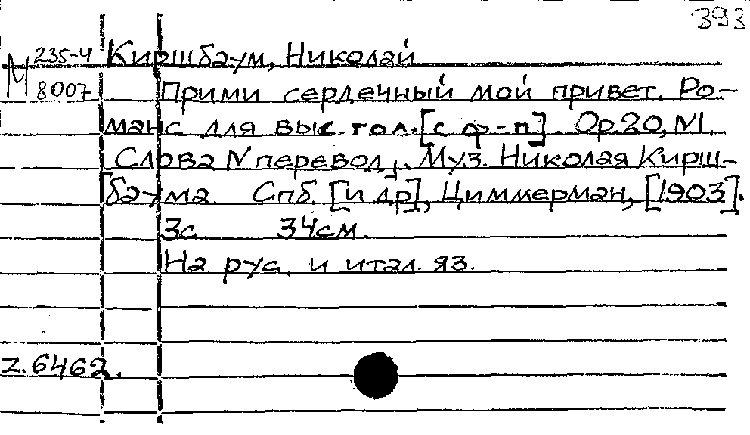 393
М 235-4 Киршбаум, Николай
8007 Прими сердечный мой привет. Ро-
манс для выс. гол. [с ф-п]. Op. 20, N1.
Слова N перевод,. Муз. Николая Кирш-
баума. Спб. [и др], Циммерман, [1903].
3с 34см.
На рус. и итал. яз.
z.6462.